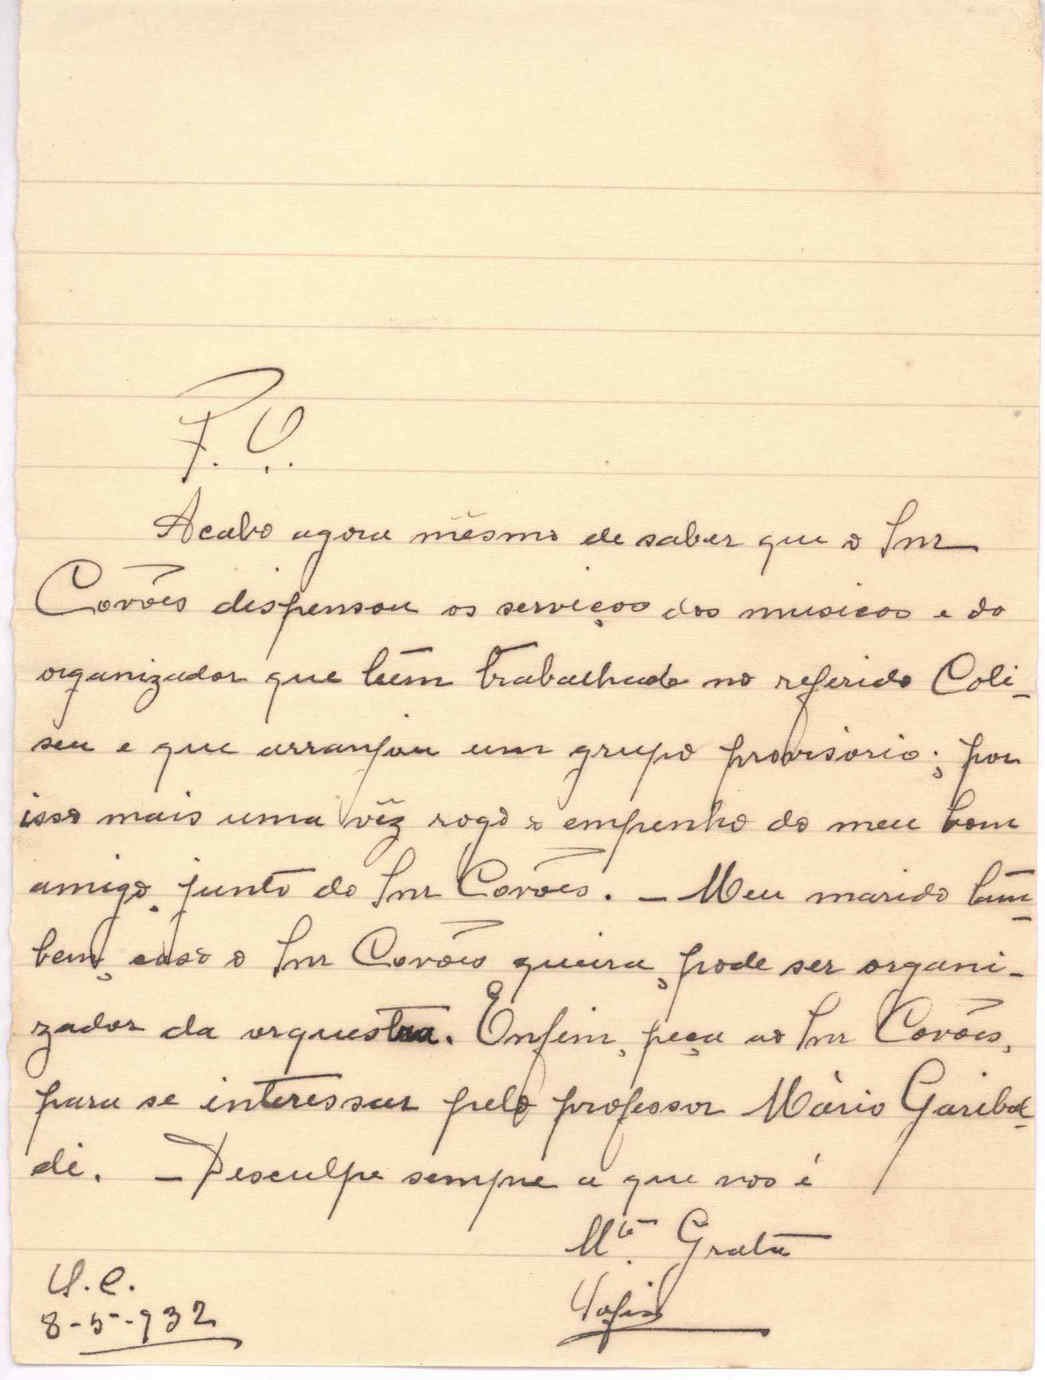 P. S.
Acabo agora mêsmo de saber que o Snr
Covões dispensou os serviços dos musicos e do
organizador que têm trabalhado no referido Coli-
seu e que arranjou um grupo provisório; por
isso mais uma vêz rogo o empenho do meu bom
amigo, junto do Snr Covões. — Meu marido tam-
bem, caso o Snr Covões queira, pode ser organi-
zador da orquestra. Enfim, peça ao Snr Covões,
para se interessar pelo professor Mário Garibal-
di. — Desculpe sempre a que vos é
Mto Grata
Sofia
S. C.
8-5-932